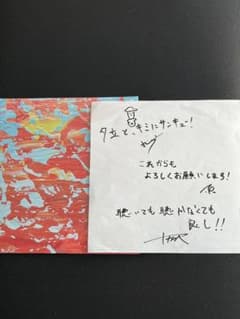 夕立ち、キミにサンキュー!
これからも
よろしくお願いします!
聴いても聴かなくても
良し!!